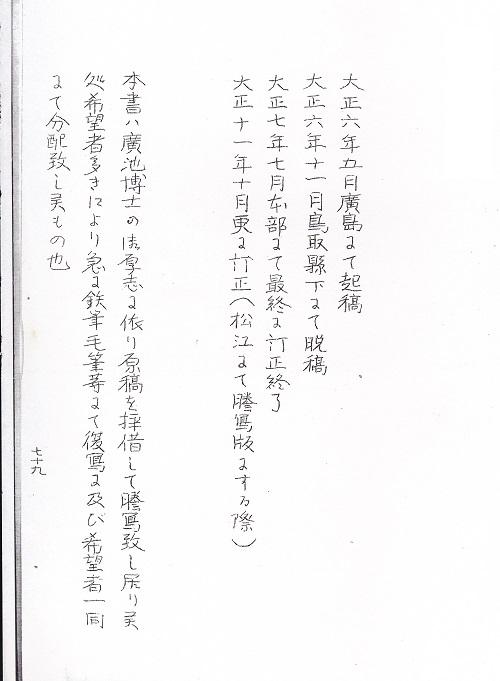 大正六年五月廣島にて起稿
大正六年十一月鳥取縣下にて脱稿
大正七年七月本部にて最終に訂正終了
大正十一年十月更に訂正(松江にて謄寫版にする際)
本書ハ廣池博士の御厚志に依り原稿を拝借して謄寫致し居り候
処希望者多きにより急に鉄筆毛筆等にて復寫に及び希望者一同
にて分配致し候もの也
七十九